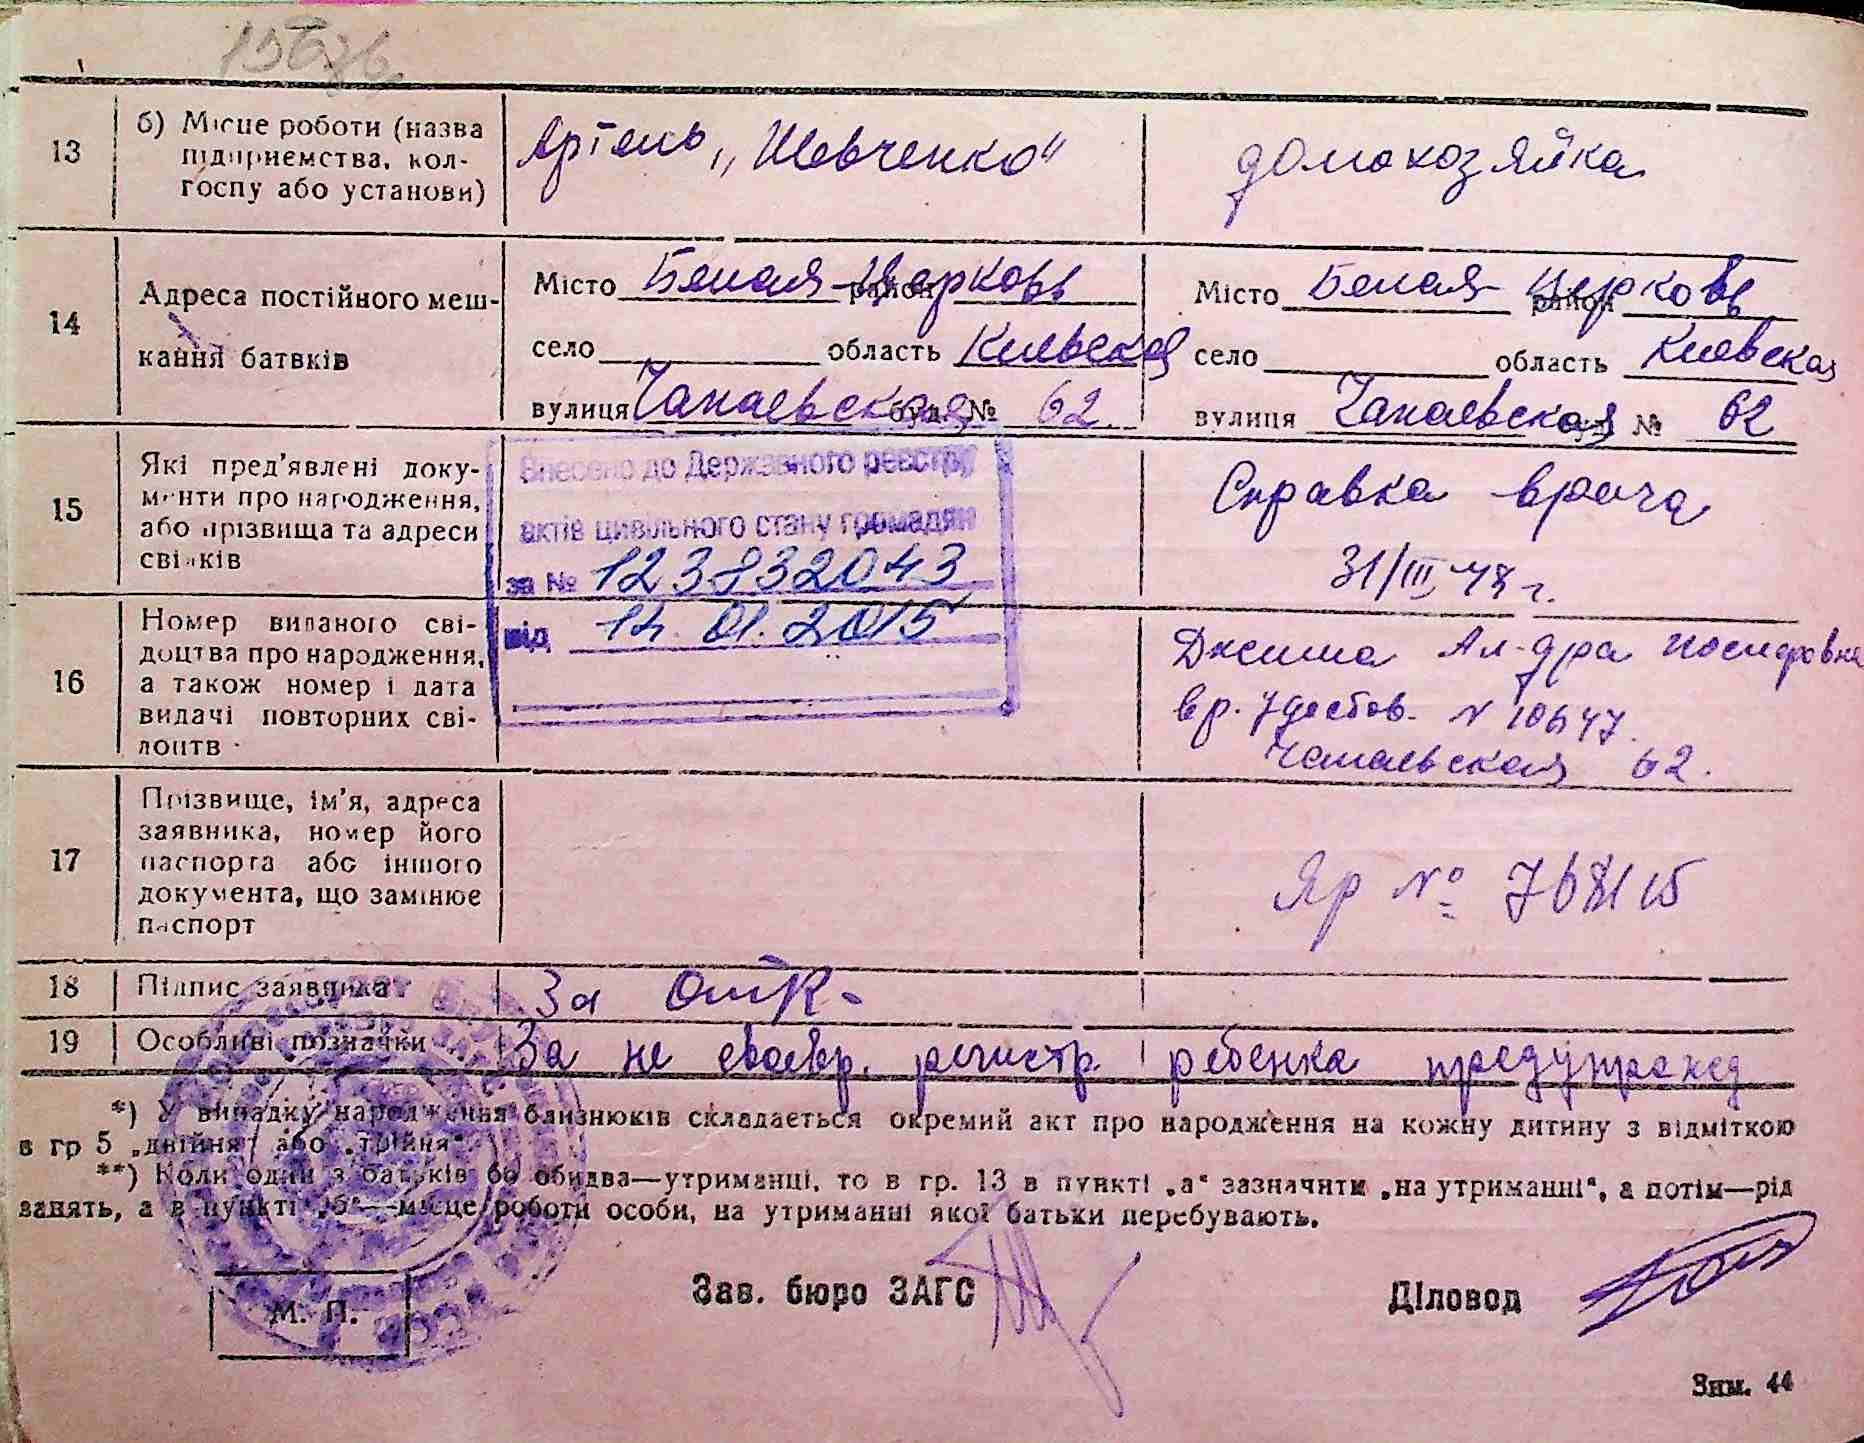 13
б) Місце роботи (назва
підприємства, кол-
госпу або установи)
Артель „Шевченко"
домохозяйка
14
Адреса постійного меш-
кання батвків
Місто Белая-Церковь район
село область Киевская
вулиця Чапаевская буд. № 62.
Місто Белая-Церковь район
село область Киевская
вулиця Чапаевская буд. № 62
15
Які пред'явлені доку-
менти про народження,
або прізвища та адреси
свідків
Внесено до Державного реєстру
актів цивільного стану громадян
за № 123832043
від 14.01.2015
Справка врача
31/III 48 г.
16
Номер виданого сві-
доцтва про народження,
а також номер і дата
видачі повторних сві-
доцтв
Ал-дра
вр. удостов. N
Чапаевская 62.
17
Прізвище, ім'я, адреса
заявника, номер його
паспорта або іншого
документа, що замінює
паспорт
ЯР №
18
Підпис заявника
За
19
Особливі позначки
За не своевр. регистр. ребенка предупрежд
*) У випадку народження близнюків складається окремий акт про народження на кожну дитину з відміткою
в гр 5 „двійня" або „трійня".
**) Коли один з батьків бо обидва—утриманці, то в гр. 13 в пункті „а" зазначити „на утриманні", а потім—рід
занять, а в пункті „б"—місце роботи особи, на утриманні якої батьки перебувають.
М. П.
Зав. бюро ЗАГС
Діловод
Зям. 44